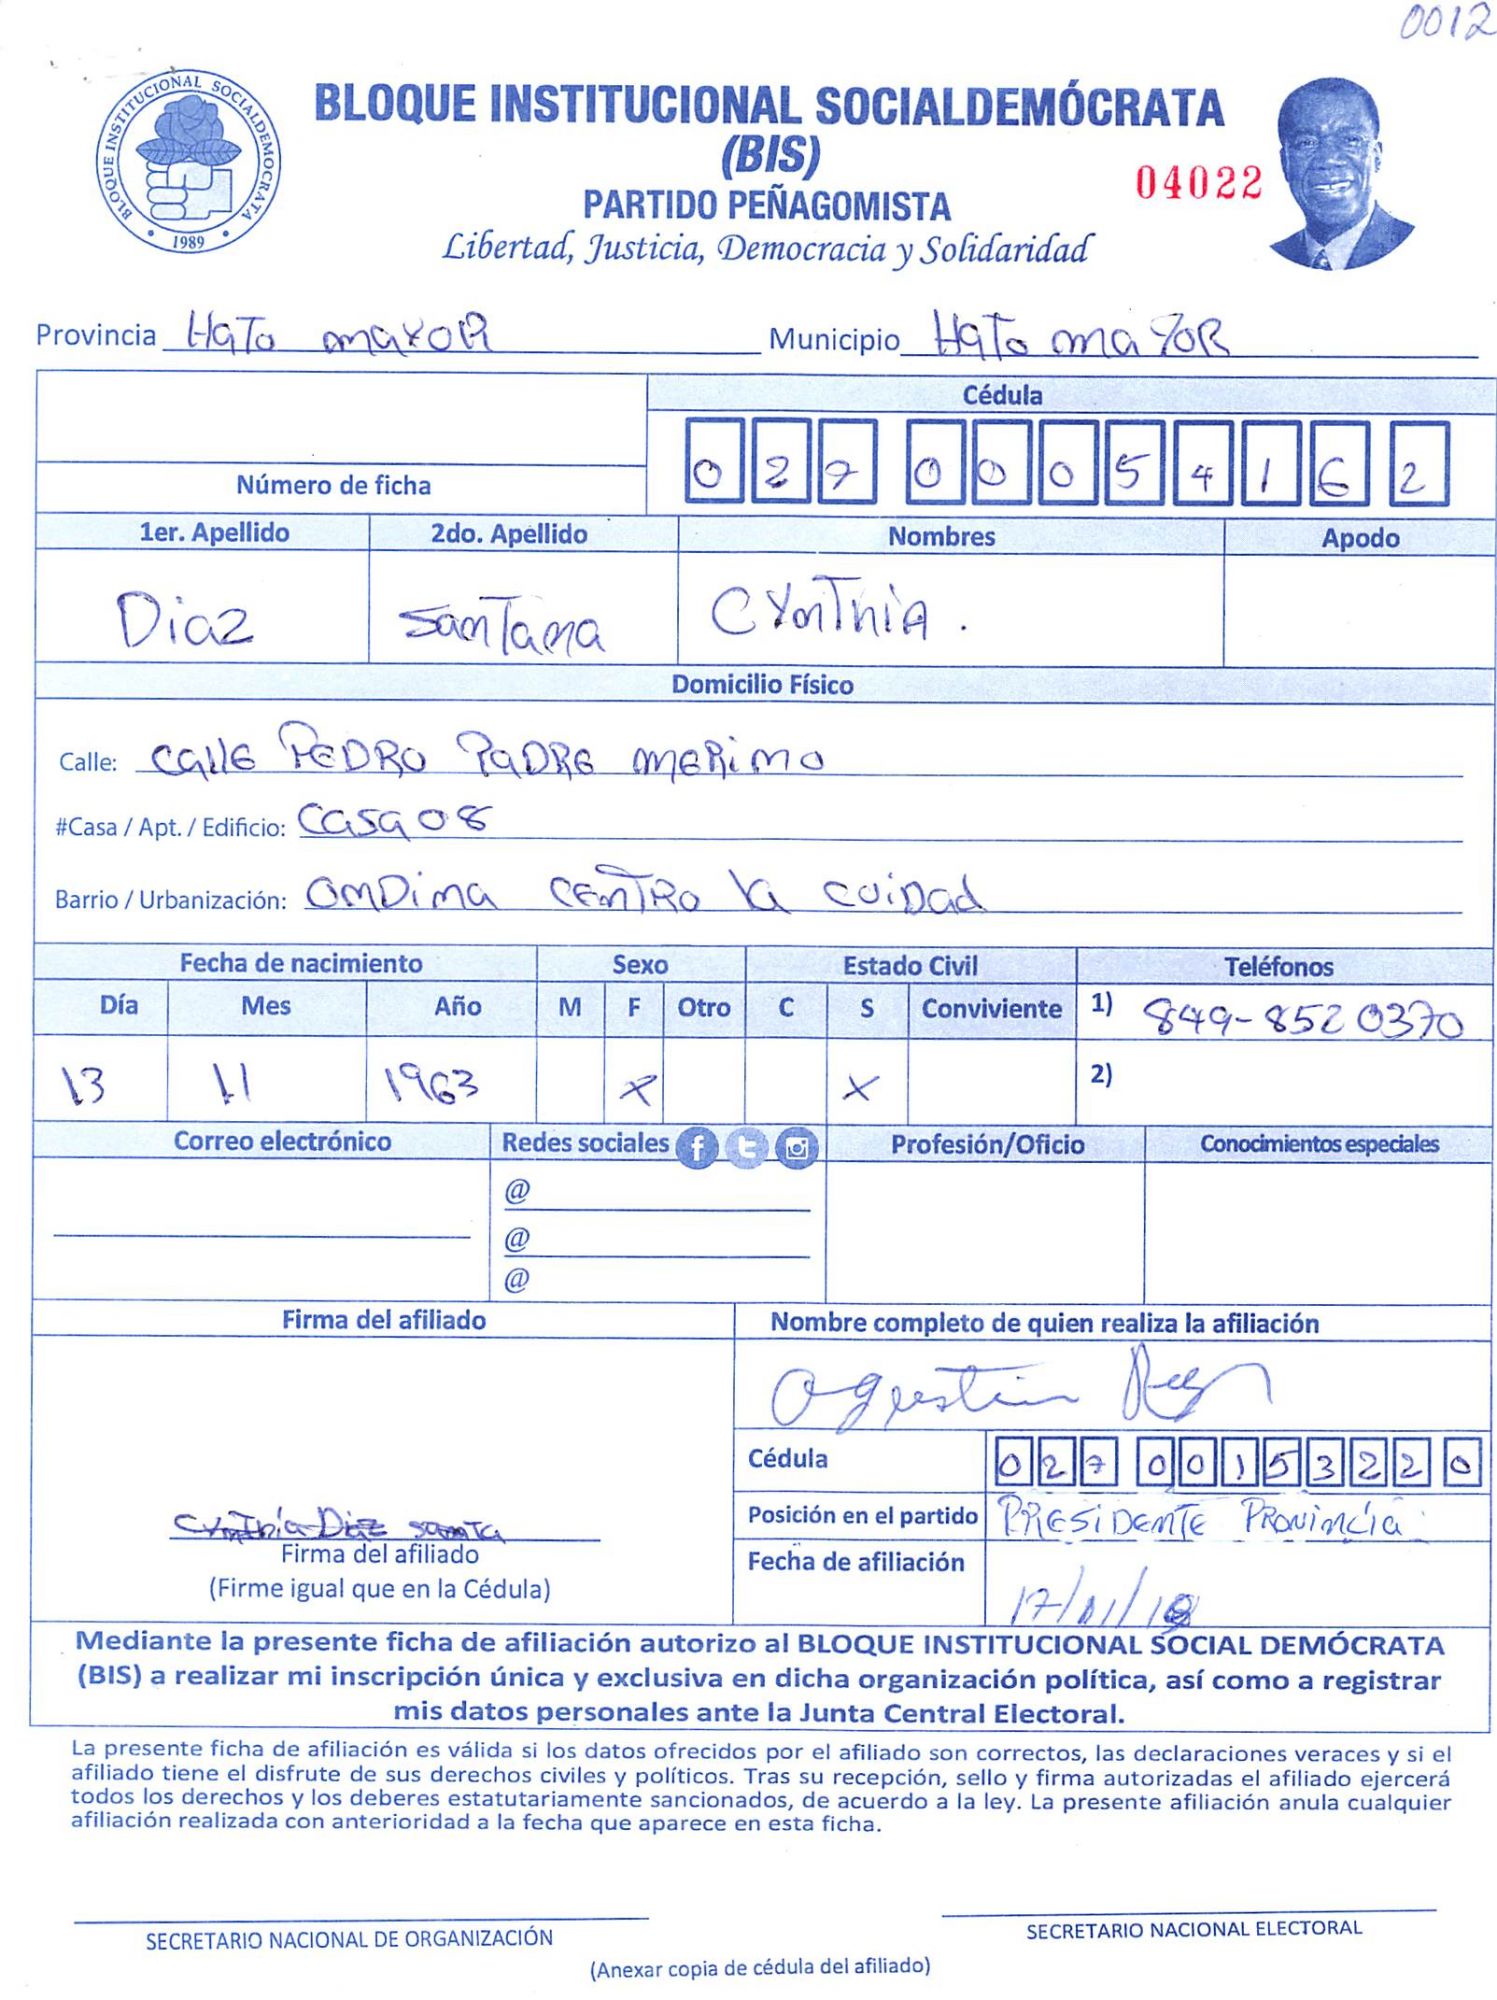 0012
BLOQUE INSTITUCIONAL SOCIALDEMÓCRATA
(BIS)
PARTIDO PEÑAGOMISTA
04022
Libertad, Justicia, Democracia y Solidaridad
BLOQUE INSTITUCIONAL SOCIALDEMOCRATA
1989
Provincia Hato mayoR Municipio Hato mayoR
Cédula
0 2 7 0 0 0 5 4 1 6 2
Número de ficha
1er. Apellido 2do. Apellido Nombres Apodo
Diaz Santana CYnThiA.
Domicilio Físico
Calle: Calle PEDRO PADRE MERiNO
#Casa / Apt. / Edificio: Casa 08
Barrio / Urbanización: OnDina CENTRO la cuiDad
Fecha de nacimiento Sexo Estado Civil Teléfonos
Día Mes Año M F Otro C S Conviviente 1) 849-852 0370
13 11 1963 X X 2)
Correo electrónico Redes sociales Profesión/Oficio Conocimientos especiales
@
@
@
Firma del afiliado Nombre completo de quien realiza la afiliación
Agustin
Cédula 0 2 7 0 0 1 5 3 2 2 0
Posición en el partido PRESiDENTE PRovincia
Cynthia Diaz
Firma del afiliado
(Firme igual que en la Cédula)
Fecha de afiliación 17/11/18
Mediante la presente ficha de afiliación autorizo al BLOQUE INSTITUCIONAL SOCIAL DEMÓCRATA
(BIS) a realizar mi inscripción única y exclusiva en dicha organización política, así como a registrar
mis datos personales ante la Junta Central Electoral.
La presente ficha de afiliación es válida si los datos ofrecidos por el afiliado son correctos, las declaraciones veraces y si el
afiliado tiene el disfrute de sus derechos civiles y políticos. Tras su recepción, sello y firma autorizadas el afiliado ejercerá
todos los derechos y los deberes estatutariamente sancionados, de acuerdo a la ley. La presente afiliación anula cualquier
afiliación realizada con anterioridad a la fecha que aparece en esta ficha.
SECRETARIO NACIONAL DE ORGANIZACIÓN SECRETARIO NACIONAL ELECTORAL
(Anexar copia de cédula del afiliado)